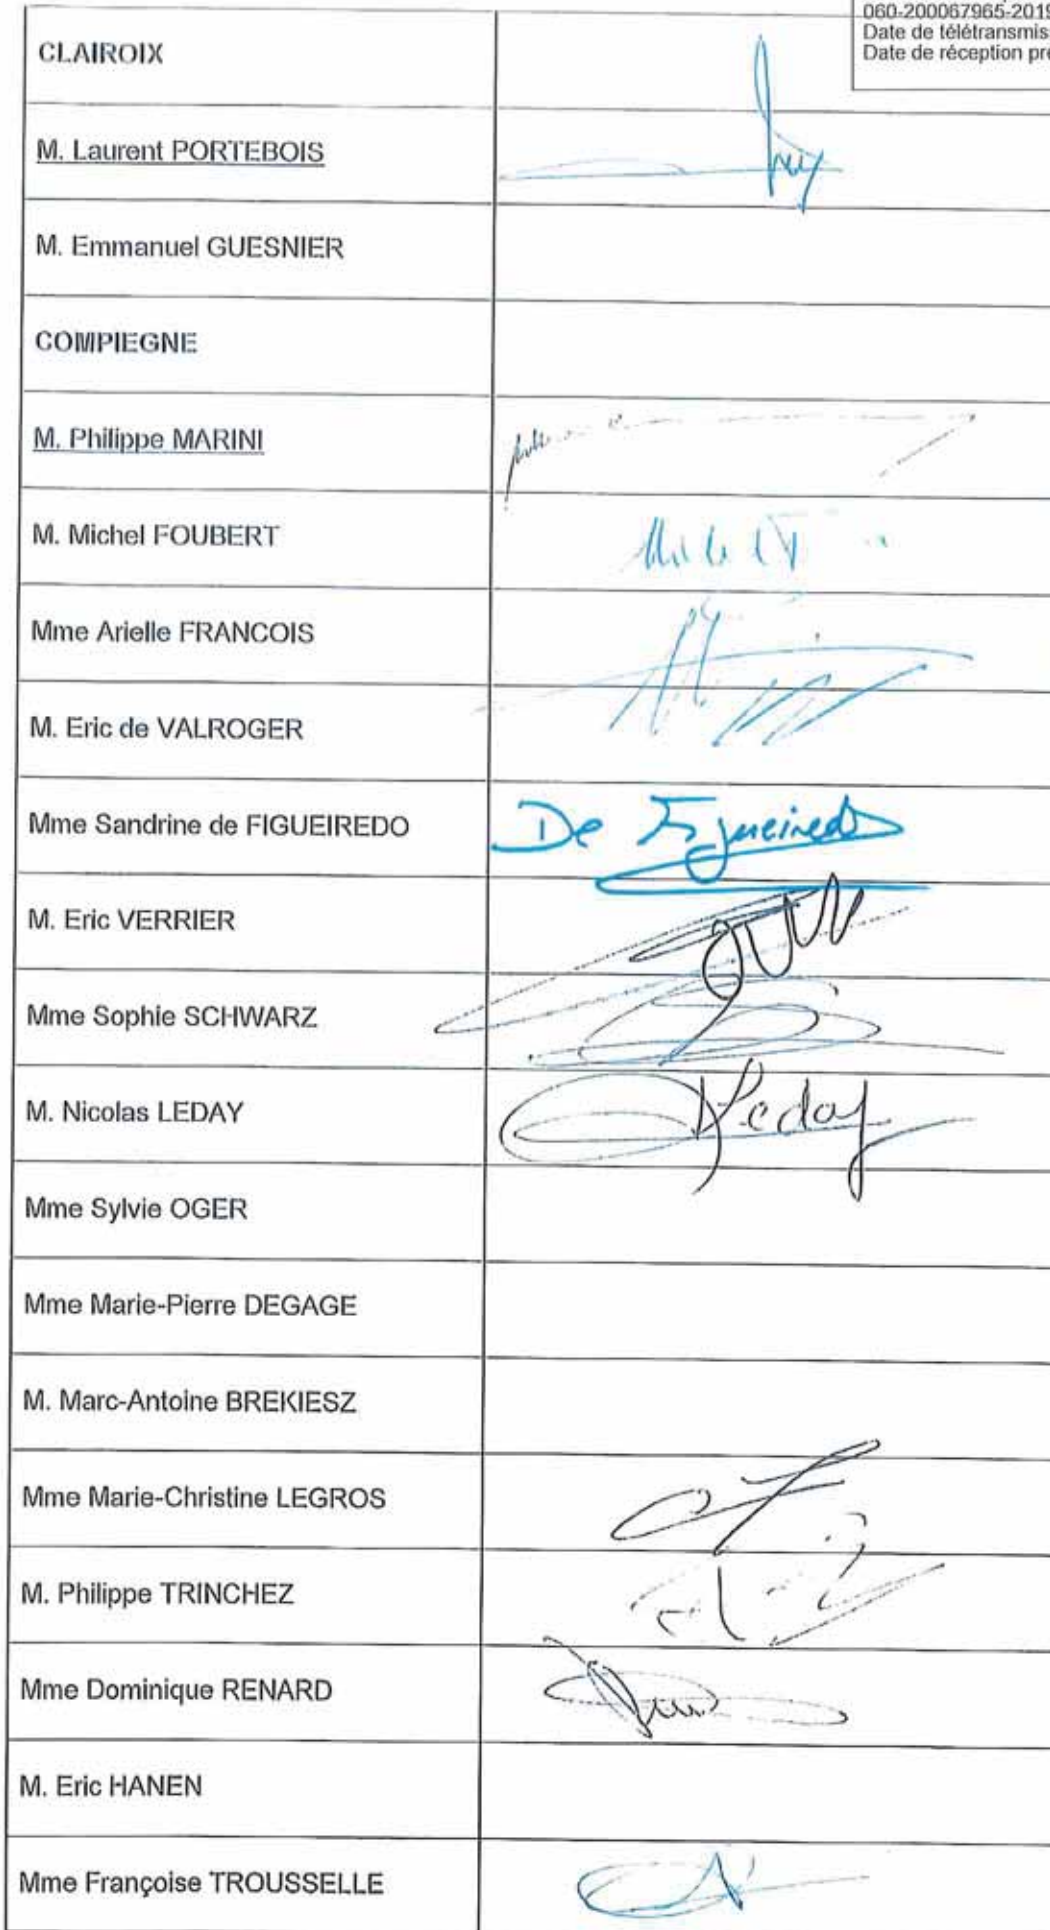 060-200067965-2019
Date de télétransmis
Date de réception pré
CLAIROIX
M. Laurent PORTEBOIS
M. Emmanuel GUESNIER
COMPIEGNE
M. Philippe MARINI
M. Michel FOUBERT
Mme Arielle FRANCOIS
M. Eric de VALROGER
Mme Sandrine de FIGUEIREDO
De Figueiredo
M. Eric VERRIER
Mme Sophie SCHWARZ
M. Nicolas LEDAY
Leday
Mme Sylvie OGER
Mme Marie-Pierre DEGAGE
M. Marc-Antoine BREKIESZ
Mme Marie-Christine LEGROS
M. Philippe TRINCHEZ
Mme Dominique RENARD
M. Eric HANEN
Mme Françoise TROUSSELLE